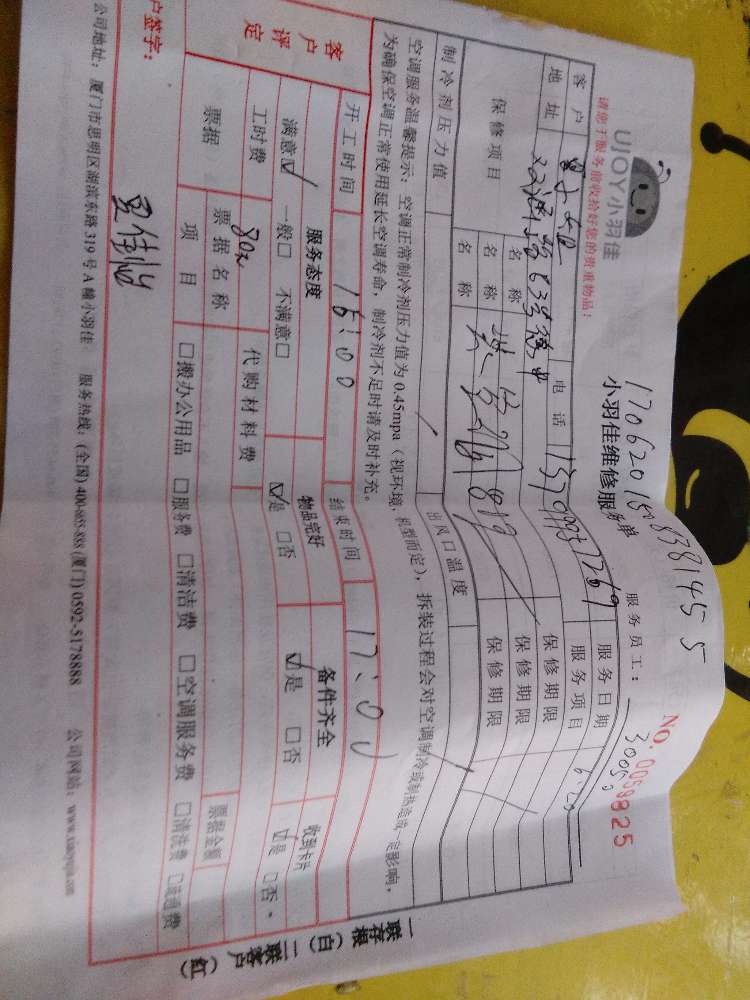 UJOY小羽佳
1706201583814 5 5
小羽佳维修服务单
NO. 0059825
请您于服务前收拾好您的贵重物品!
服务员工: 30050
客户 电话 服务日期 6.20
地址 63号 服务项目
保修项目 名称 保修期限
名称 保修期限
名称 保修期限
制冷剂压力值 出风口温度
空调服务温馨提示:空调正常制冷剂压力值为0.45mpa(视环境,机型而定),拆装过程会对空调制冷或制热造成一定影响,
为确保空调正常使用延长空调寿命,制冷剂不足时请及时补充。
开工时间 16:00 结束时间 17:00
客户评定 服务态度 物品完好 备件齐全 收到卡片
满意☑ 一般□ 不满意□ ☑是 □否 ☑是 □否 ☑是 □否
工时费 80元 代购材料费
票据 票据名称 票据金额
项目 □搬办公用品 □服务费 □清洁费 □空调服务费 □清洗费 □疏通费
户签字:
公司地址:厦门市思明区湖滨东路319号A幢小羽佳 服务热线:(全国)400-605-888 (厦门)0592-5178888 公司网站:www.xiaoyujia.com
一联存根(白)二联客户(红)